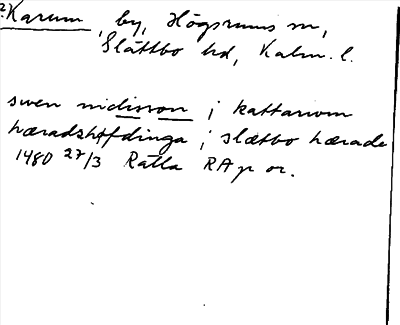 ?Karum, by, Högsrums sn,
Slättbo hd, Kalm. l.
swen nidisson j kattarwm
hæradzhffdinga j slætbo hærade
1480 27/3 Rälla RAp or.